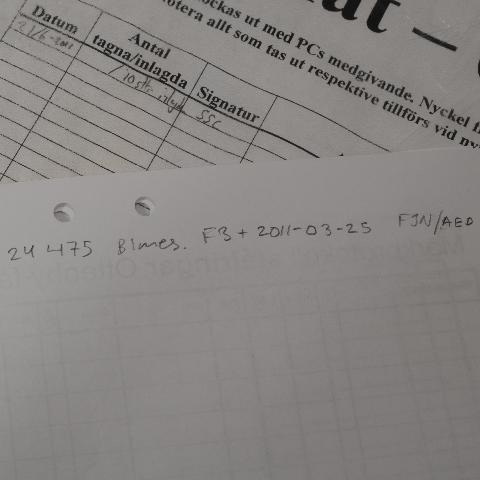 at –
ockas ut med PCs medgivande. Nyckel f
otera allt som tas ut respektive tillförs vid ny
Datum
Antal
tagna/inlagda
Signatur
10 st
SSC
24 475 Blmes. F3 + 2011-03-25 FJN/AED